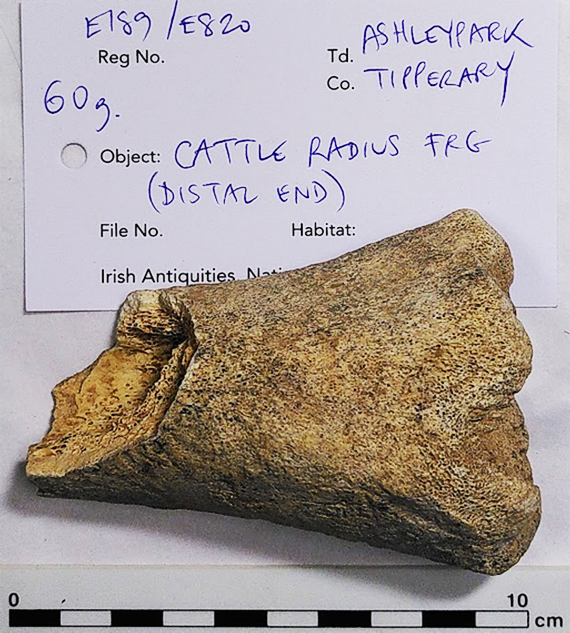 E189/E820
Reg No.
Td. ASHLEYPARK
Co. TIPPERARY
60g.
Object: CATTLE RADIUS FRG
(DISTAL END)
File No. Habitat:
Irish Antiquities
0 10 cm